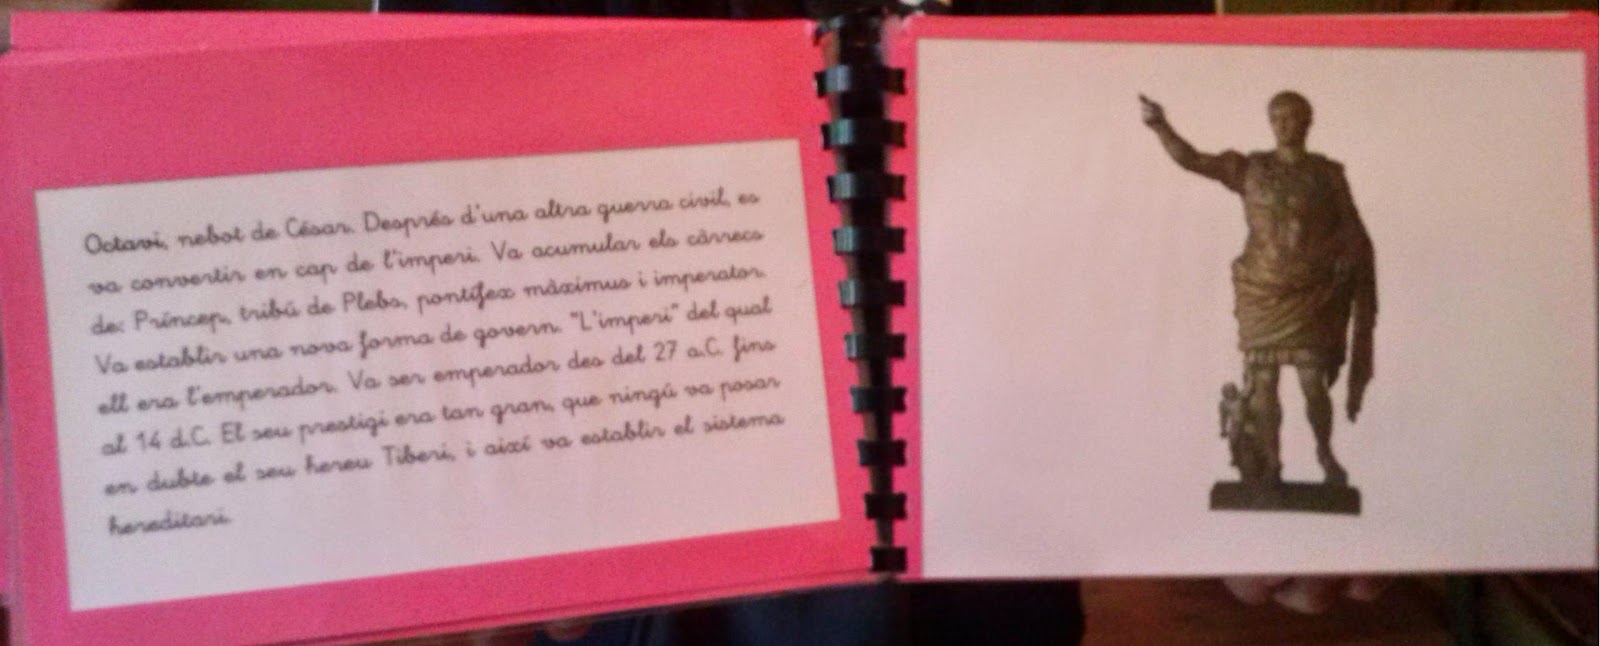 Octavi, nebot de César. Després d'una altra guerra civil, es
va convertir en cap de l'imperi. Va acumular els càrrecs
de: Príncep, tribú de Plebs, pontífex màximus i imperator.
Va establir una nova forma de govern. "L'imperi" del qual
ell era l'emperador. Va ser emperador des del 27 a.C. fins
al 14 d.C. El seu prestigi era tan gran, que ningú va posar
en dubte el seu hereu Tiberi, i així va establir el sistema
hereditari.